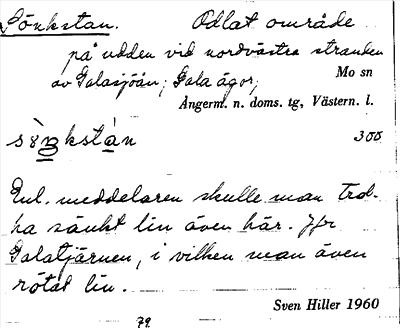 Sönkstan. Odlat område
på udden vid nordvästra stranden
av Galasjöån; Gala ägor,
Mo sn
Ångerm. n. doms. tg, Västern. l.
300
Enl. meddelaren skulle man trol.
ha sänkt lin även här. Jfr
Galatjärnen, i vilken man även
rötat lin.
Sven Hiller 1960
79